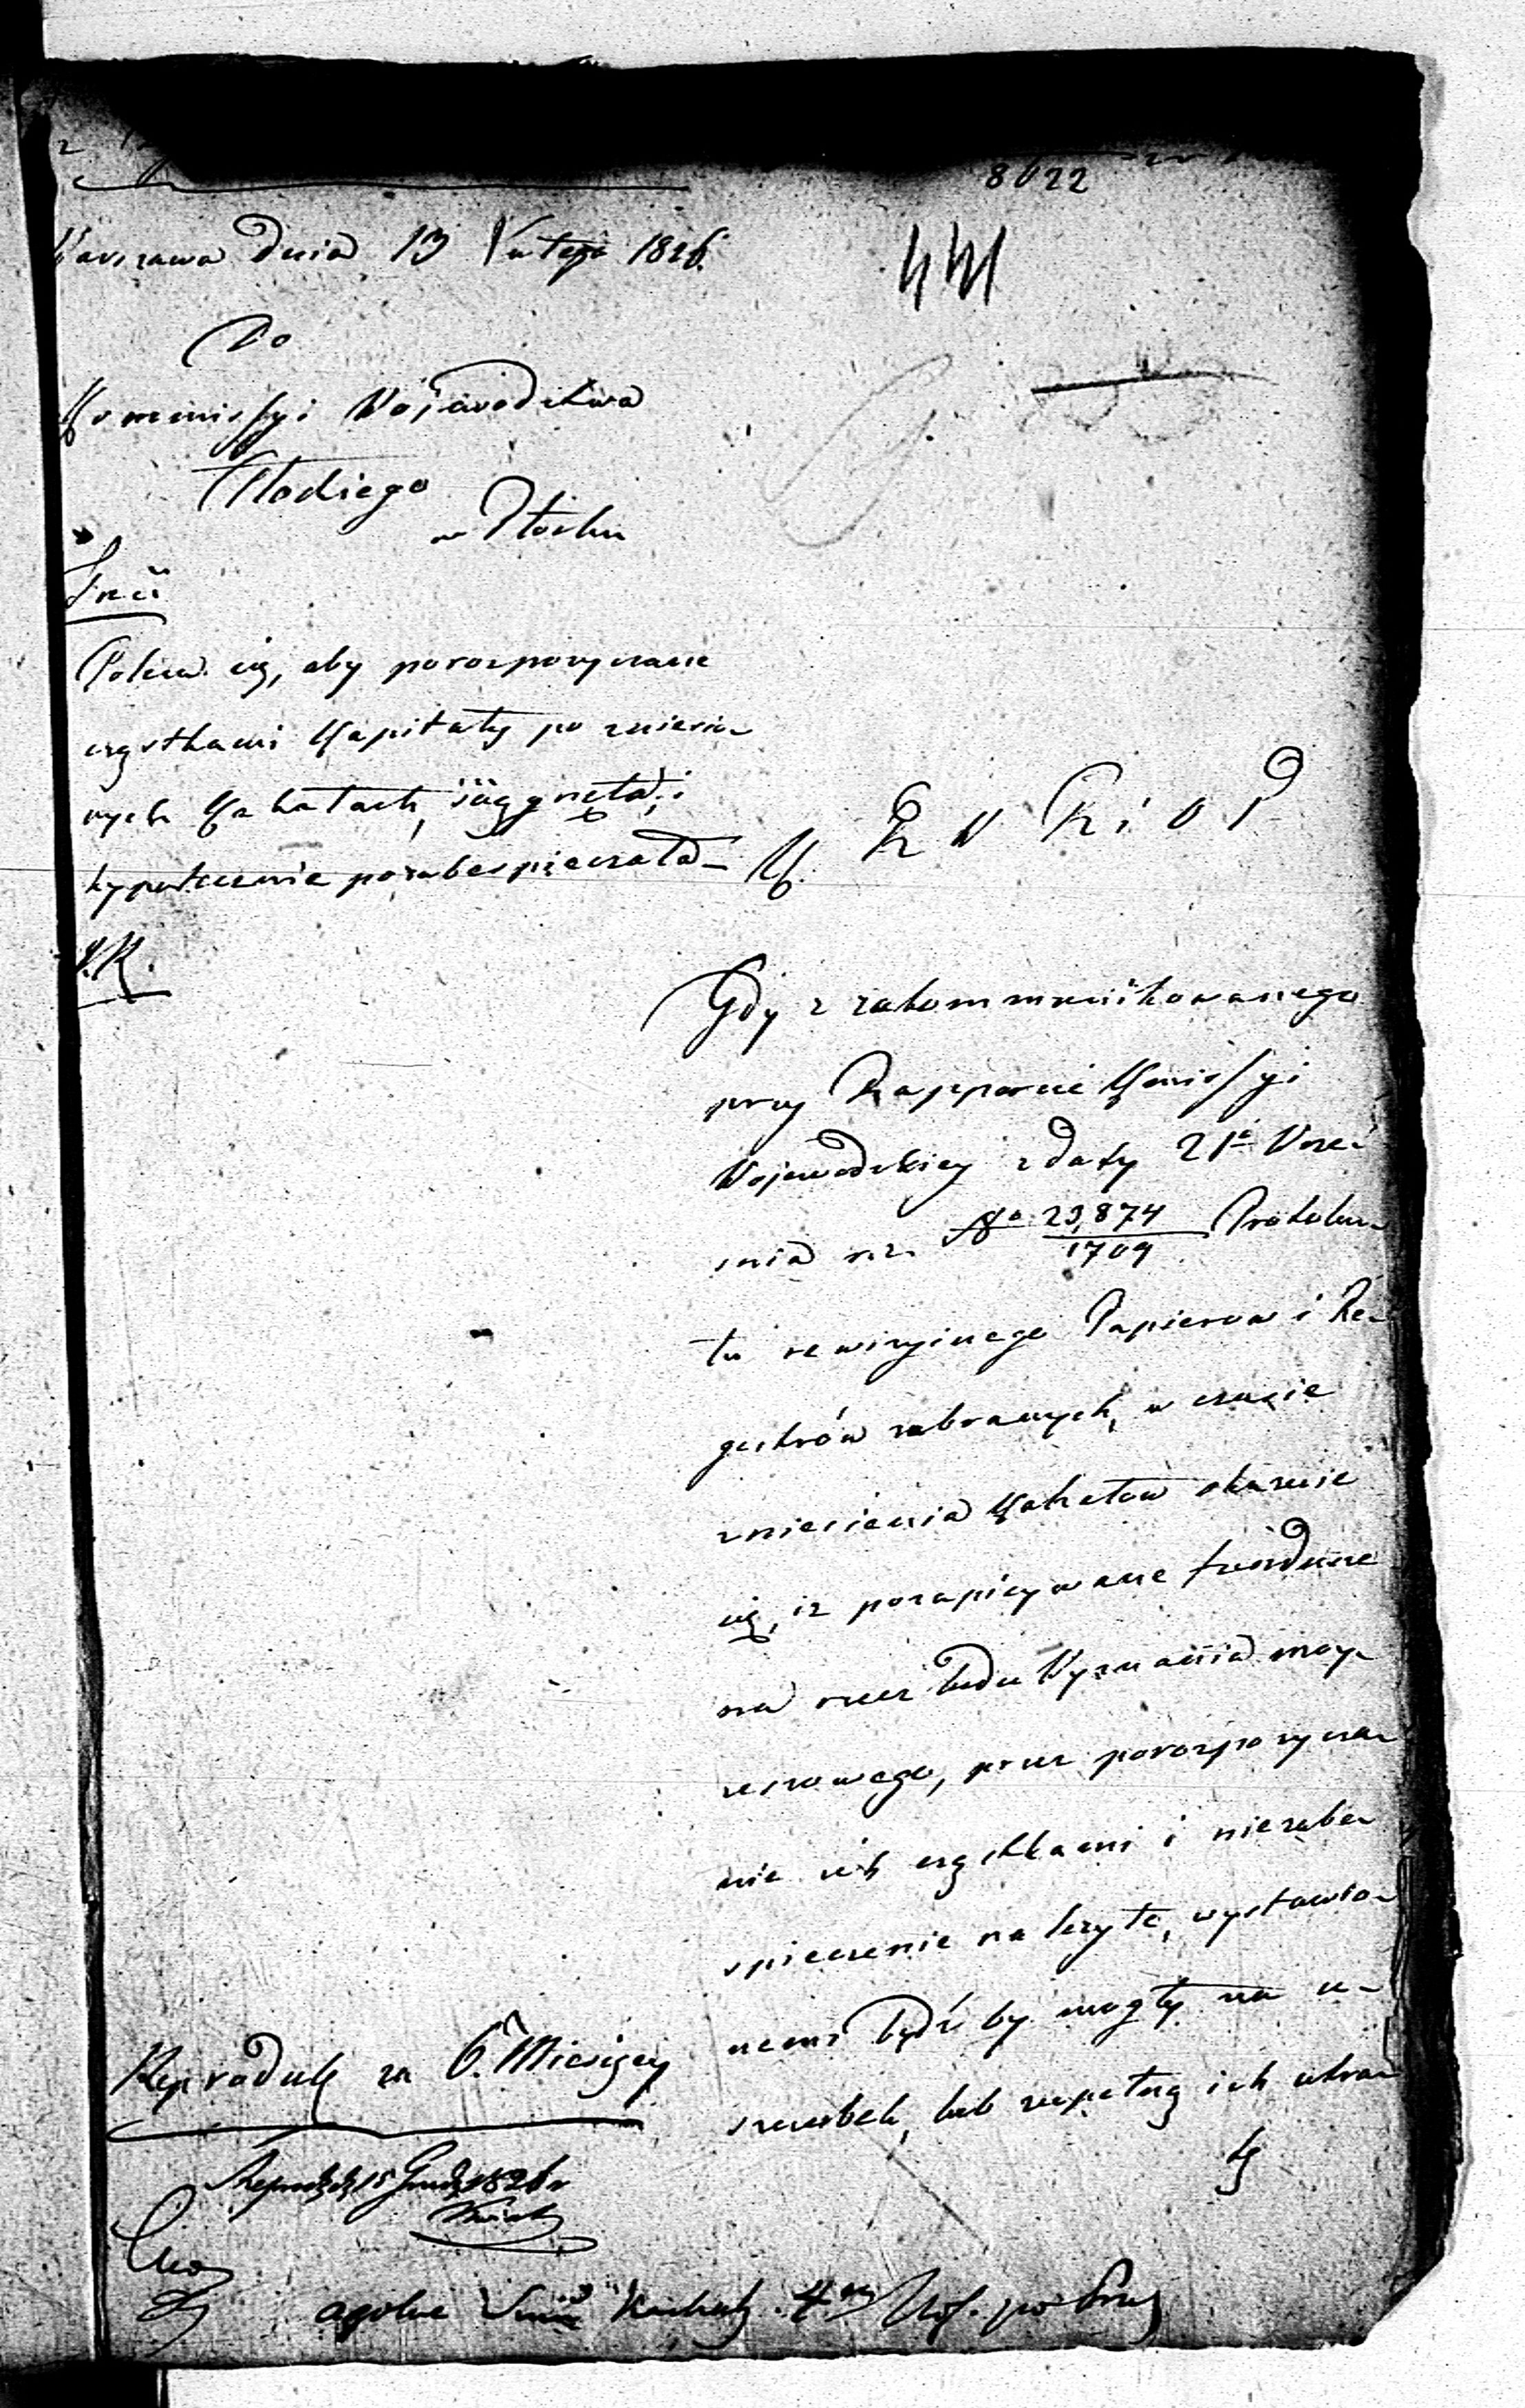 8622
Warszawa dnia 13 Lutego 1826.
441
Do
Kommissyi Województwa
Płockiego
w Płocku
Poleca się, aby porozpożyczane
cząstkami Kapitały po zniesio-
nych Kahałach, ściągnęła, i
hypotecznie pozabespieczała
K. R. W. R. i O. P.
Gdy z zakommunikowanego
przy Rapporcie Kmissyi
Wojewodzkiey z daty 21º Wrze-
śnia r. z. No 23,874/1709 Protoku-
łu rewizyinego Papierow i Re-
gestrów zabranych, w czasie
zniesienia Kahałow okazuie
się, iż pozapisywane fundusze
na rzecz ludu Wyznania moy-
zeszowego, przez porozpożycza-
nie ich cząstkami i niezabe-
spieczenie należyte, wystawio-
nemi bydź by mogły na u-
szczerbek, lub zupełną ich utra-
tę
Reproduk za 6. Miesięcy
Reprod. d. 15 Grud. 1826 r